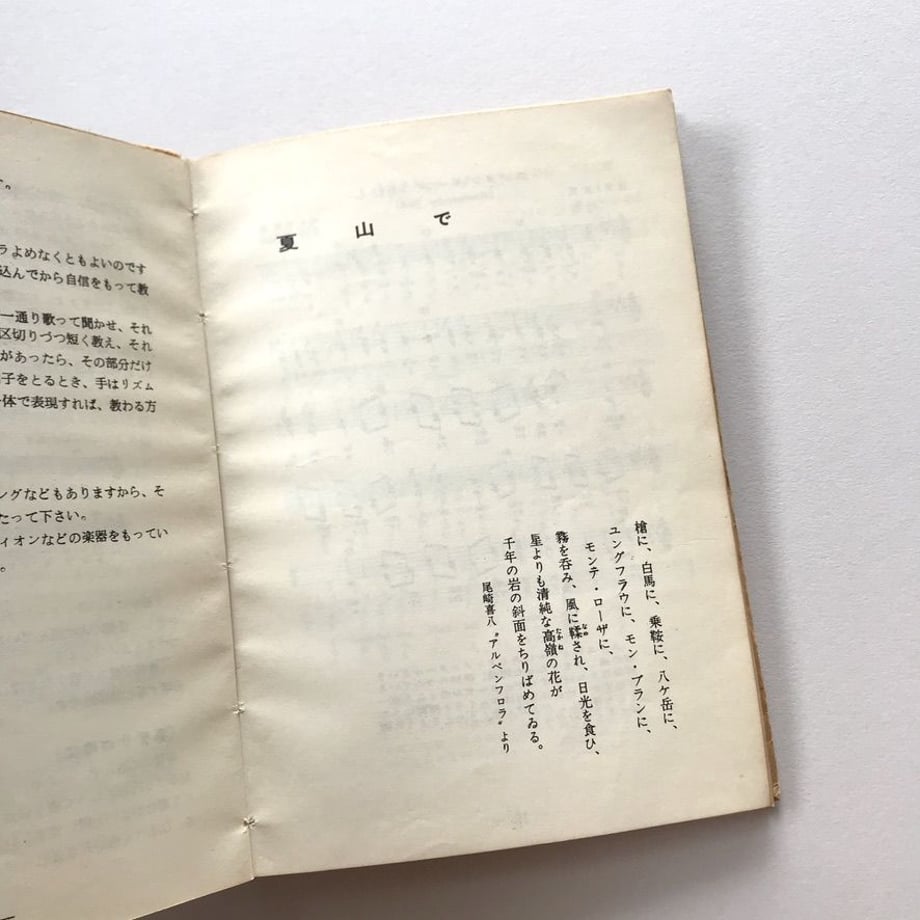 す。
ラよめなくともよいのです
込んでから自信をもって教
一通り歌って聞かせ、それ
区切りづつ短く教え、それ
があったら、その部分だけ
子をとるとき、手はリズム
体で表現すれば、教わる方
ングなどもありますから、そ
たって下さい。
ィオンなどの楽器をもってい
。
夏山で
槍に、白馬に、乗鞍に、八ケ岳に、
ユングフラウに、モン・ブランに、
モンテ・ローザに、
霧を呑み、風に鞣され、日光を食ひ、
星よりも清純な高嶺の花が
千年の岩の斜面をちりばめてゐる。
尾崎喜八〝アルペンフロラ〟より